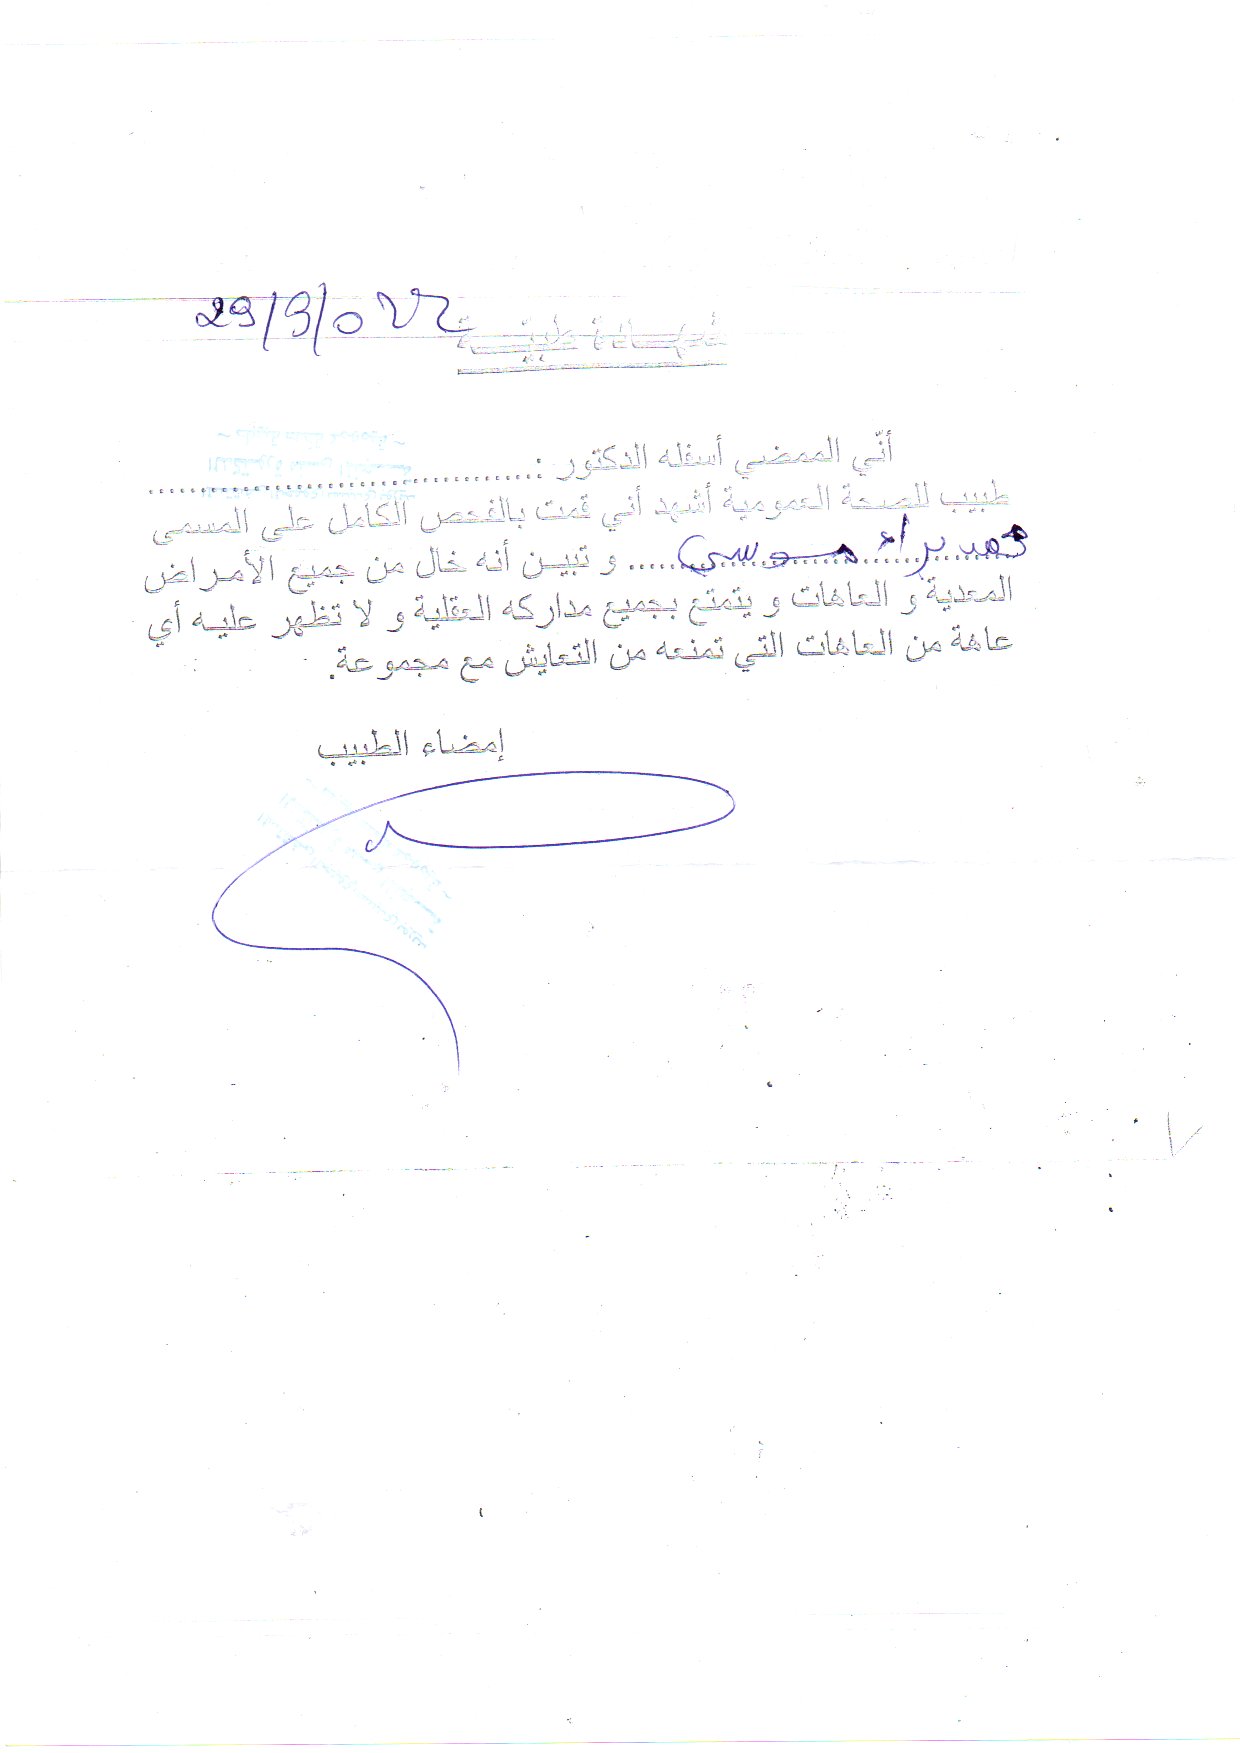 29/9/022
شهـــادة طبيـــة
أنّي الممضي أسفله الدكتور :.......................................
طبيب للصحة العمومية أشهد أني قمت بالفحص الكامل على المسمى
موسي ..... و تبيـن أنه خال من جميع الأمـراض
المعدية و العاهات و يتمتع بجميع مداركه العقلية و لا تظهر عليـه أي
عاهة من العاهات التي تمنعه من التعايش مع مجموعة.
إمضاء الطبيب